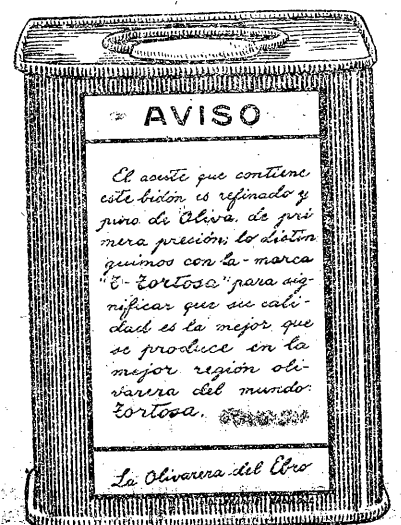 AVISO
El aceite que contiene
este bidón es refinado y
puro de Oliva, de pri
mera presión; lo distin
guimos con la marca
"T-Tortosa" para sig-
nificar que su cali-
dad es la mejor que
se produce en la
mejor región oli-
varera del mundo:
Tortosa.
La Olivarera del Ebro